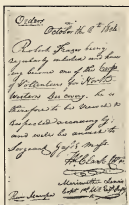 Orders
October the 8th 1804
Robert Frazer being
regularly inlisted and have
ing become one of the Corps
of Vollenteers for North
Western Discovery, he is
therefore to be viewed &
respected accordingly;
and will be annexed to
Sergeant Gass's Mess.
Wm Clark
Meriwether Lewis
Capt. 1st U.S. Regt.
River Marapa